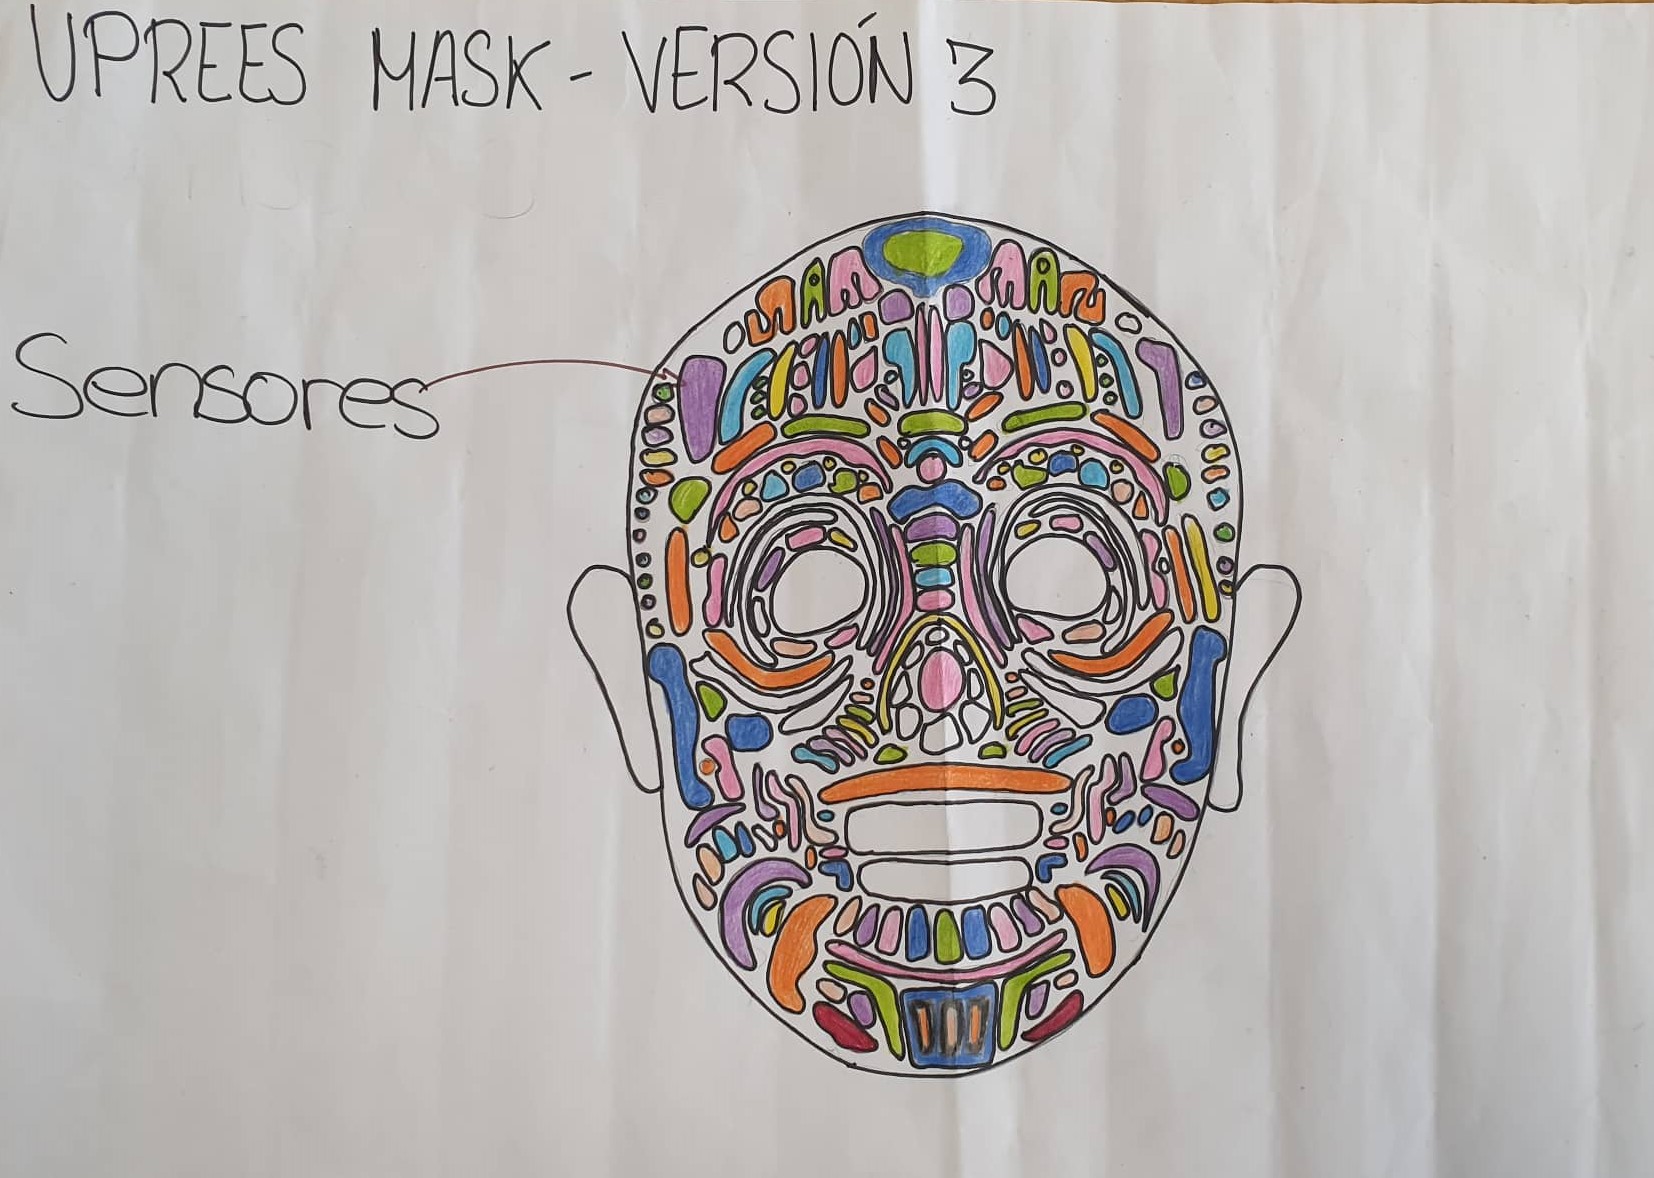 UPREES MASK - VERSIÓN 3
Sensores